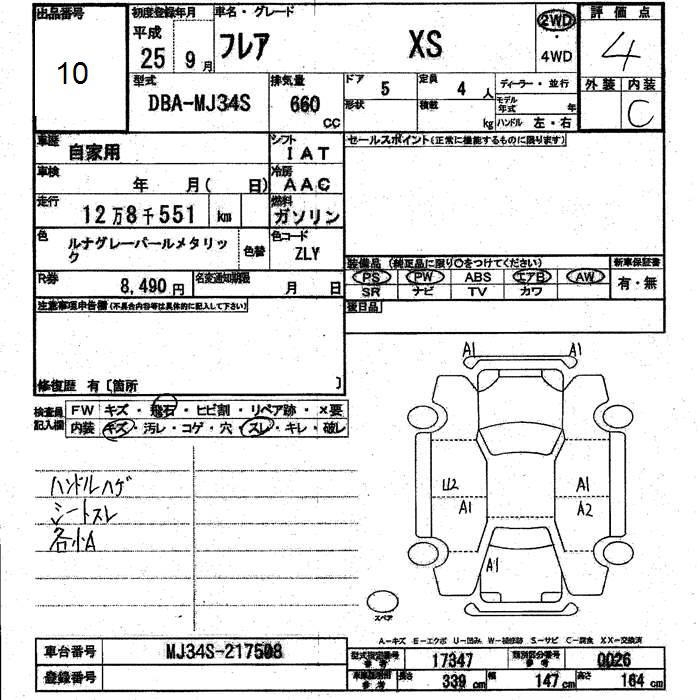 出品番号 初度登録年月 車名・グレード 評価点
10 平成 25 9月 フレア XS 2WD ・ 4WD 4
外装 内装 C
型式 排気量 ドア 5 定員 4人 ディーラー・並行
DBA-MJ34S 660 cc 形状 積載 kg モデル年式 年
ハンドル 左・右
車歴 自家用 シフト IAT セールスポイント(正常に機能するものに限ります)
車検 年 月( 日) 冷房 AAC
走行 12万8千551 km 燃料 ガソリン
色 ルナグレーパールメタリック 色替 色コード ZLY
装備品(純正品に限り○をつけてください) 新車保証書
R券 8,490円 名変通知期限 月 日 PS PW ABS エアB AW 有・無
SR ナビ TV カワ
注意事項申告欄(不具合内容等は具体的に記入して下さい) 後日品
修復歴 有〔箇所 〕
検査員記入欄 FW キズ・飛石・ヒビ割・リペア跡・×要
内装 キズ・汚レ・コゲ・穴・スレ・キレ・破レ
A1 A1
ハンドルハゲ U2 A1
シートスレ A1 A2
各小A
A1
スペア
A-キズ E-エクボ U-凹み W-補修跡 S-サビ C-腐食 XX-交換済
車台番号 MJ34S-217508 型式指定番号 参考 17347 類別区分番号 参考 0026
登録番号 参考 長さ 339cm 幅 147cm 高さ 164cm